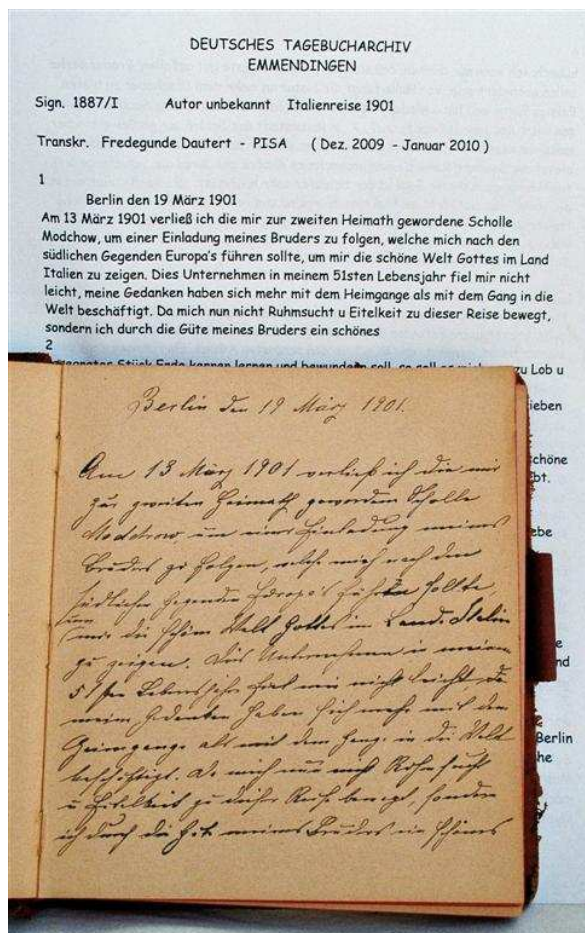 DEUTSCHES TAGEBUCHARCHIV
EMMENDINGEN
Sign. 1887/I Autor unbekannt Italienreise 1901
Transkr. Fredegunde Dautert - PISA ( Dez. 2009 - Januar 2010 )
1
Berlin den 19 März 1901
Am 13 März 1901 verließ ich die mir zur zweiten Heimath gewordene Scholle
Modchow, um einer Einladung meines Bruders zu folgen, welche mich nach den
südlichen Gegenden Europa's führen sollte, um mir die schöne Welt Gottes im Land
Italien zu zeigen. Dies Unternehmen in meinem 51sten Lebensjahr fiel mir nicht
leicht, meine Gedanken haben sich mehr mit dem Heimgange als mit dem Gang in die
Welt beschöftigt. Da mich nun nicht Ruhmsucht u Eitelkeit zu dieser Reise bewegt,
sondern ich durch die Güte meines Bruders ein schönes
2
Stück Erde kennen lernen und bewundern soll, so soll zu Lob u
Berlin
Berlin den 19 März 1901.
Am 13 März 1901 verließ ich die mir
zur zweiten Heimath gewordene Scholle
Modchow um einer Einladung meines
Bruders zu folgen, welche mich nach den
südlichen Gegenden Europa's führen sollte,
um
mir die schöne Welt Gottes im Land Italien
zu zeigen. Dies Unternehmen in meinem
51sten Lebensjahr fiel mir nicht leicht, da
meine Gedanken haben sich mehr mit dem
Heimgange als mit dem Gange in die Welt
beschöftigt. Da mich nun nicht Ruhmsucht
u Eitelkeit zu dieser Reise bewegt, sondern
ich durch die Güte meines Bruders ein schönes